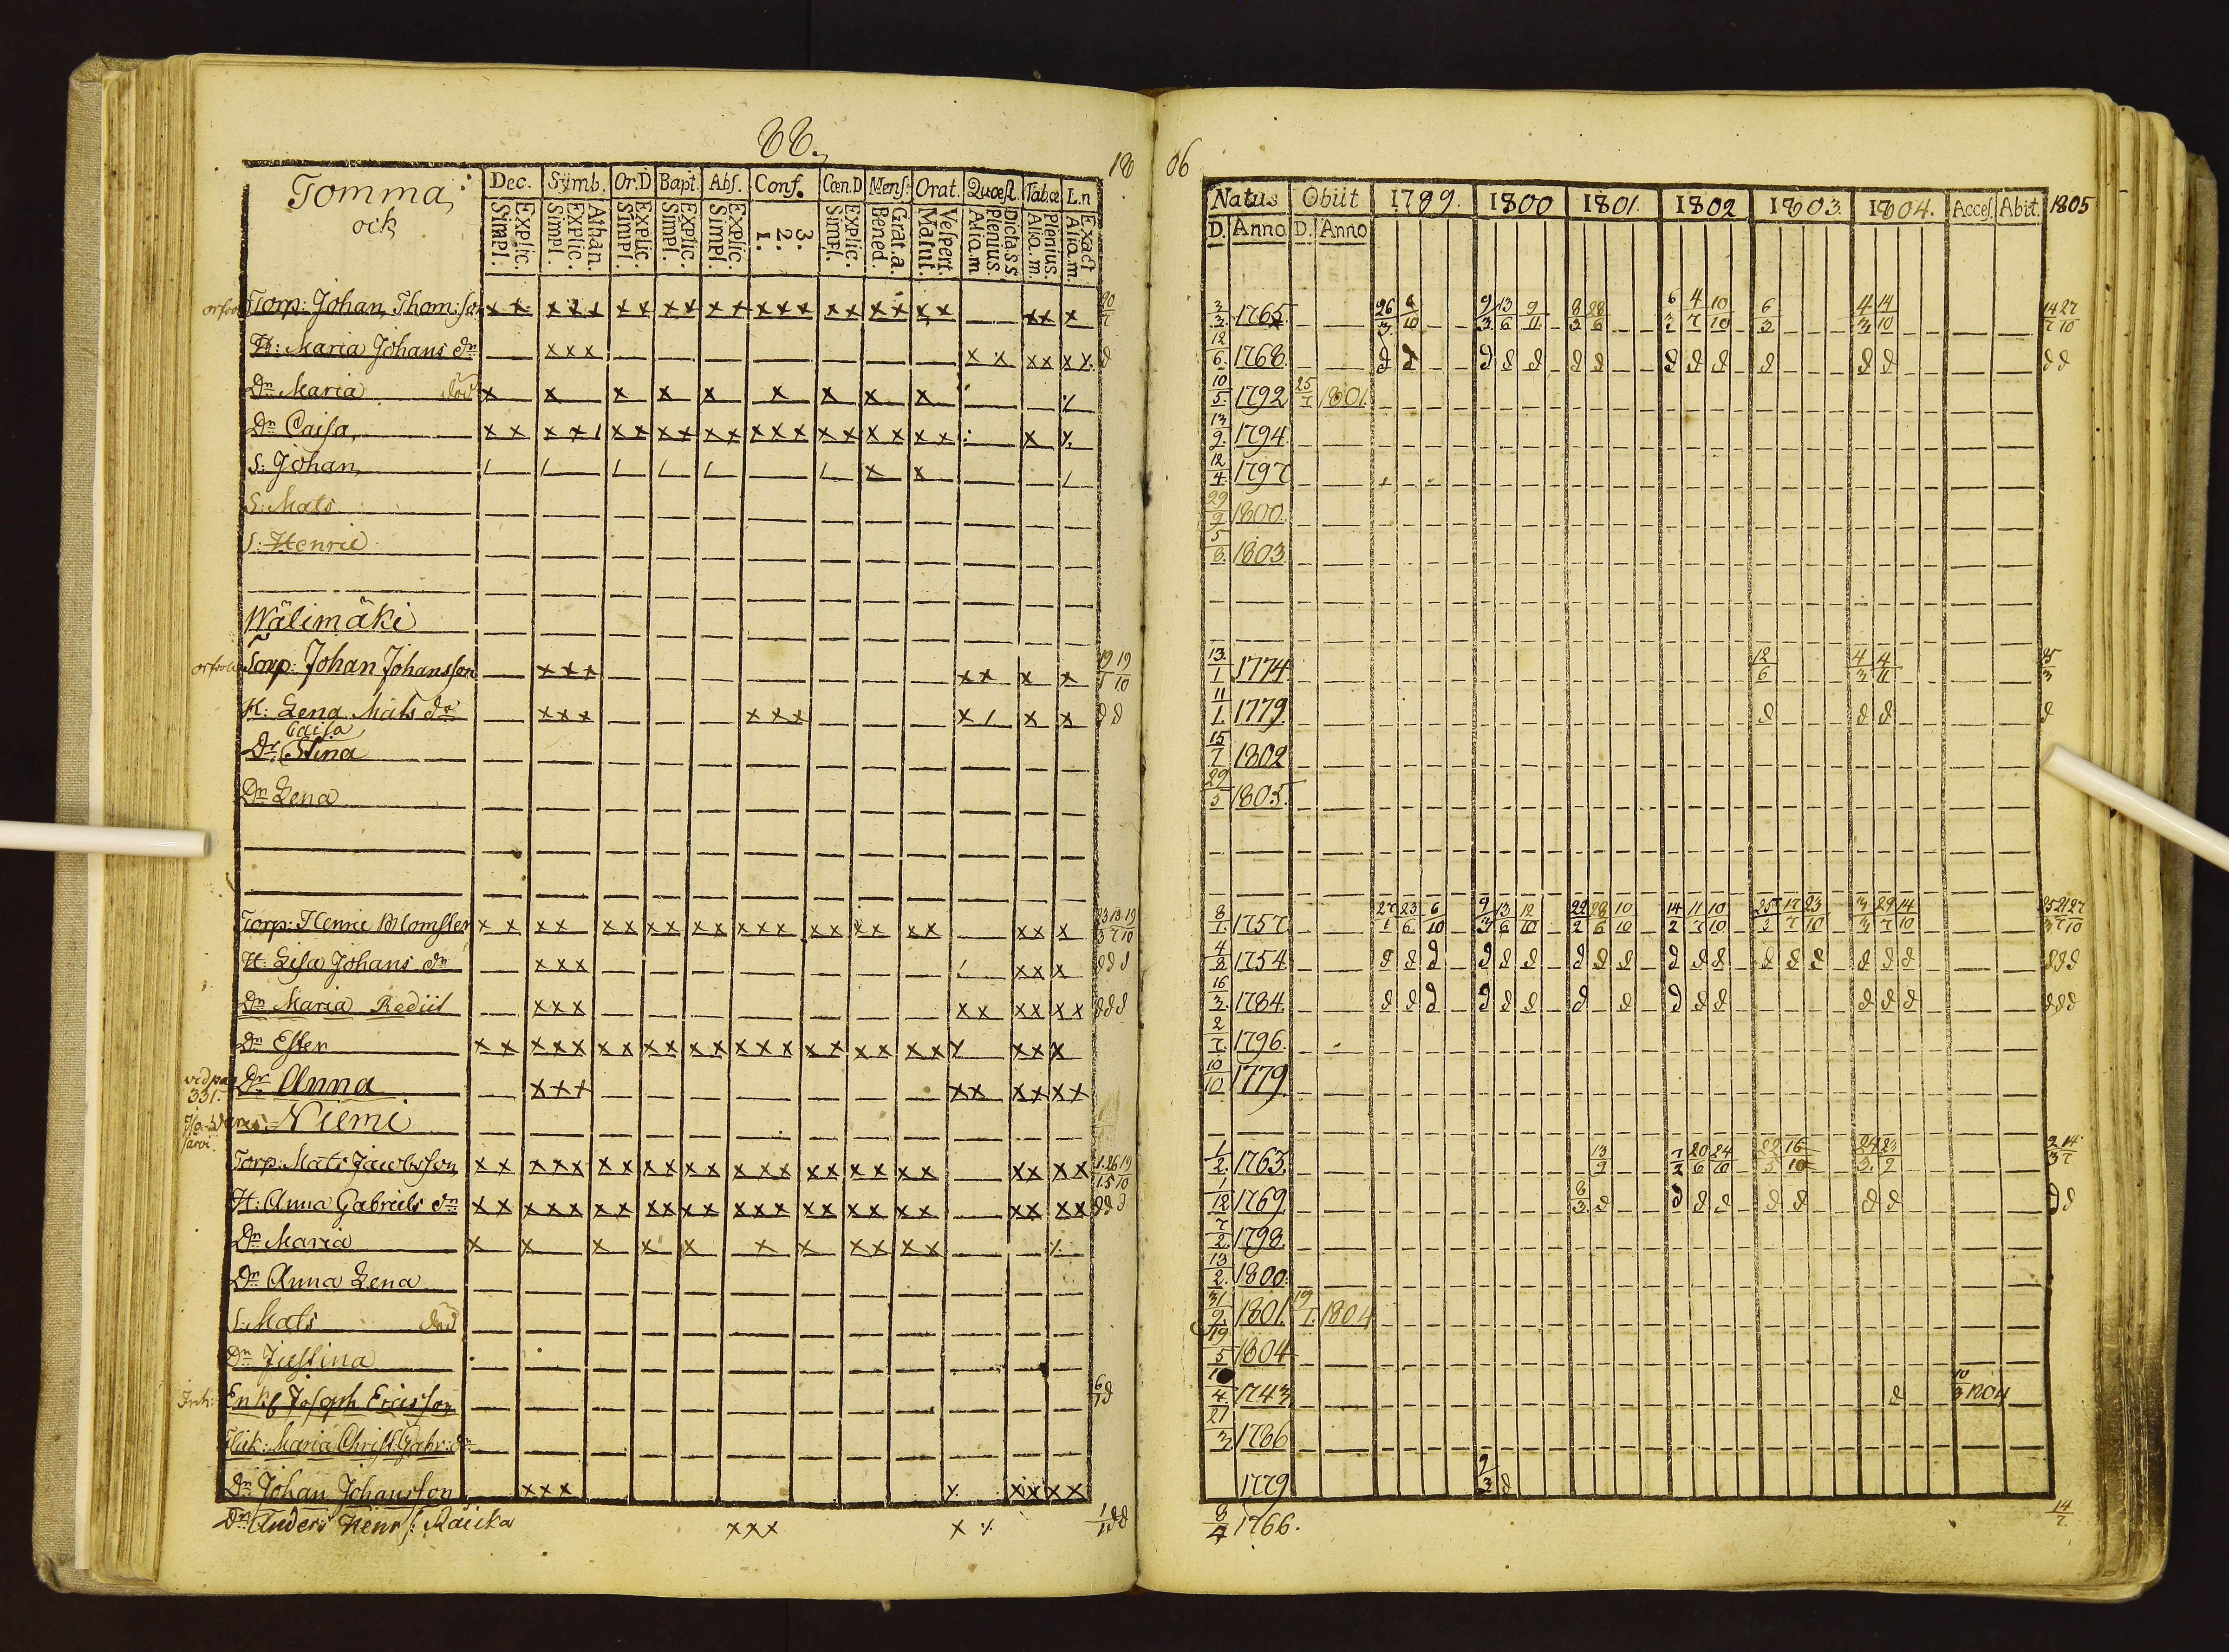 88.
18 06
Tomma, ock
Dec. Symb. Or.D Bapt. Abs. Conf. Cœn.D Mens: Orat. Quæst. Tab.œ L.n
Explic. Simpl. Athan. Explic. Simpl. Explic. Simpl. Explic. Simpl. Explic. Simpl. 3. 2. 1. Explic. Simpl. Grat.a. Bened. Vespert. Matut. Dicta.s.s Plenius. Alia.m Plenius. Alia.m. Exact Alia.m.
Natus Obiit 1799. 1800 1801. 1802 1803. 1804. Acces. Abit. 1805
D. Anno D. Anno
Torp: Johan Thom:son x x x x x x x x x x x x x x x x x x x x x x x x 20/7 3/3. 1765 26/3 8/10 9/3 13/6 9/11. 8/3 28/6 6/3 4/7 10/10 6/3 4/3 14/10 14/7 27/10
H: Maria Johans dr x x x x x x x x d 12/6. 1768. d d d d d d d d d d d d d d d
Dr Maria död x x x x x x x x x 10/5. 1792 25/7 1801.
Dr Caisa, x x x x x x x x x x x x x x x x x x x x x 13/9. 1794.
S: Johan, x x 12/4 1797
S: Mats 29/9 1800.
S: Henric 5/8. 1803.
Wälimäki
Torp: Johan Johansson x x x x x x x 19/1 19/10 13/1 1774. 12/6 4/3 4/11 25/3
H: Lena Mats dr x x x x x x x x x d d 11/1. 1779. d d d d
Caisa
Dr Stina 15/7 1802
Dr Lena 29/5 1805.
Torp: Henric Blomster x x x x x x x x x x x x x x x x x x x x x 8/1. 1757. 27/1 23/6 6/10 9/3 13/6 12/10 22/2 28/6 10/10 14/2 11/7 10/10 25/3 17/7 23/10 3/3 29/7 14/10
H: Lisa Johans dr x x x x x x d d d 1754. d d d d d d d d d d d d d d d d d d d d d
Dr Maria Rediit x x x x x x x x x d d d 16/3. 1784. d d d d d d d d d d d d d d d d d
Dr Ester x x x x x x x x x x x x x x x x x x x x x x x 2/7. 1796.
vid pag 331. Dr Anna x x x x x x x x x 10/10 1779.
Niemi
Torp: Mats Jacobsson x x x x x x x x x x x x x x x x x x x x x x x x 1/2. 1763. 13/9 7/2 20/6 24/10 22/3 16/10 24/3. 23/9 2/3 14/7
H: Anna Gabriels dr x x x x x x x x x x x x x x x x x x x x x x x x d d d 1/12 1769. 8/3 d d d d d d d d d d
Dr Maria x x x x x x x x x x x 7/2. 1798.
Dr Anna Lena 13/2. 1800.
S: Mats död 31/9. 1801. 19/1. 1804
Dr Justina 19/5 1804
Enkl Joseph Ericsson 6/1 d 1743 d 10/3 1804
Maria Christ: Gabr: dr 27/3 1786
Dr Johan Johansson x x x x x x x x 1779 9/3 d
Dr Anders Henr: s: Raucka x x x x 1/1 d d 8/4 1766. 14/7.